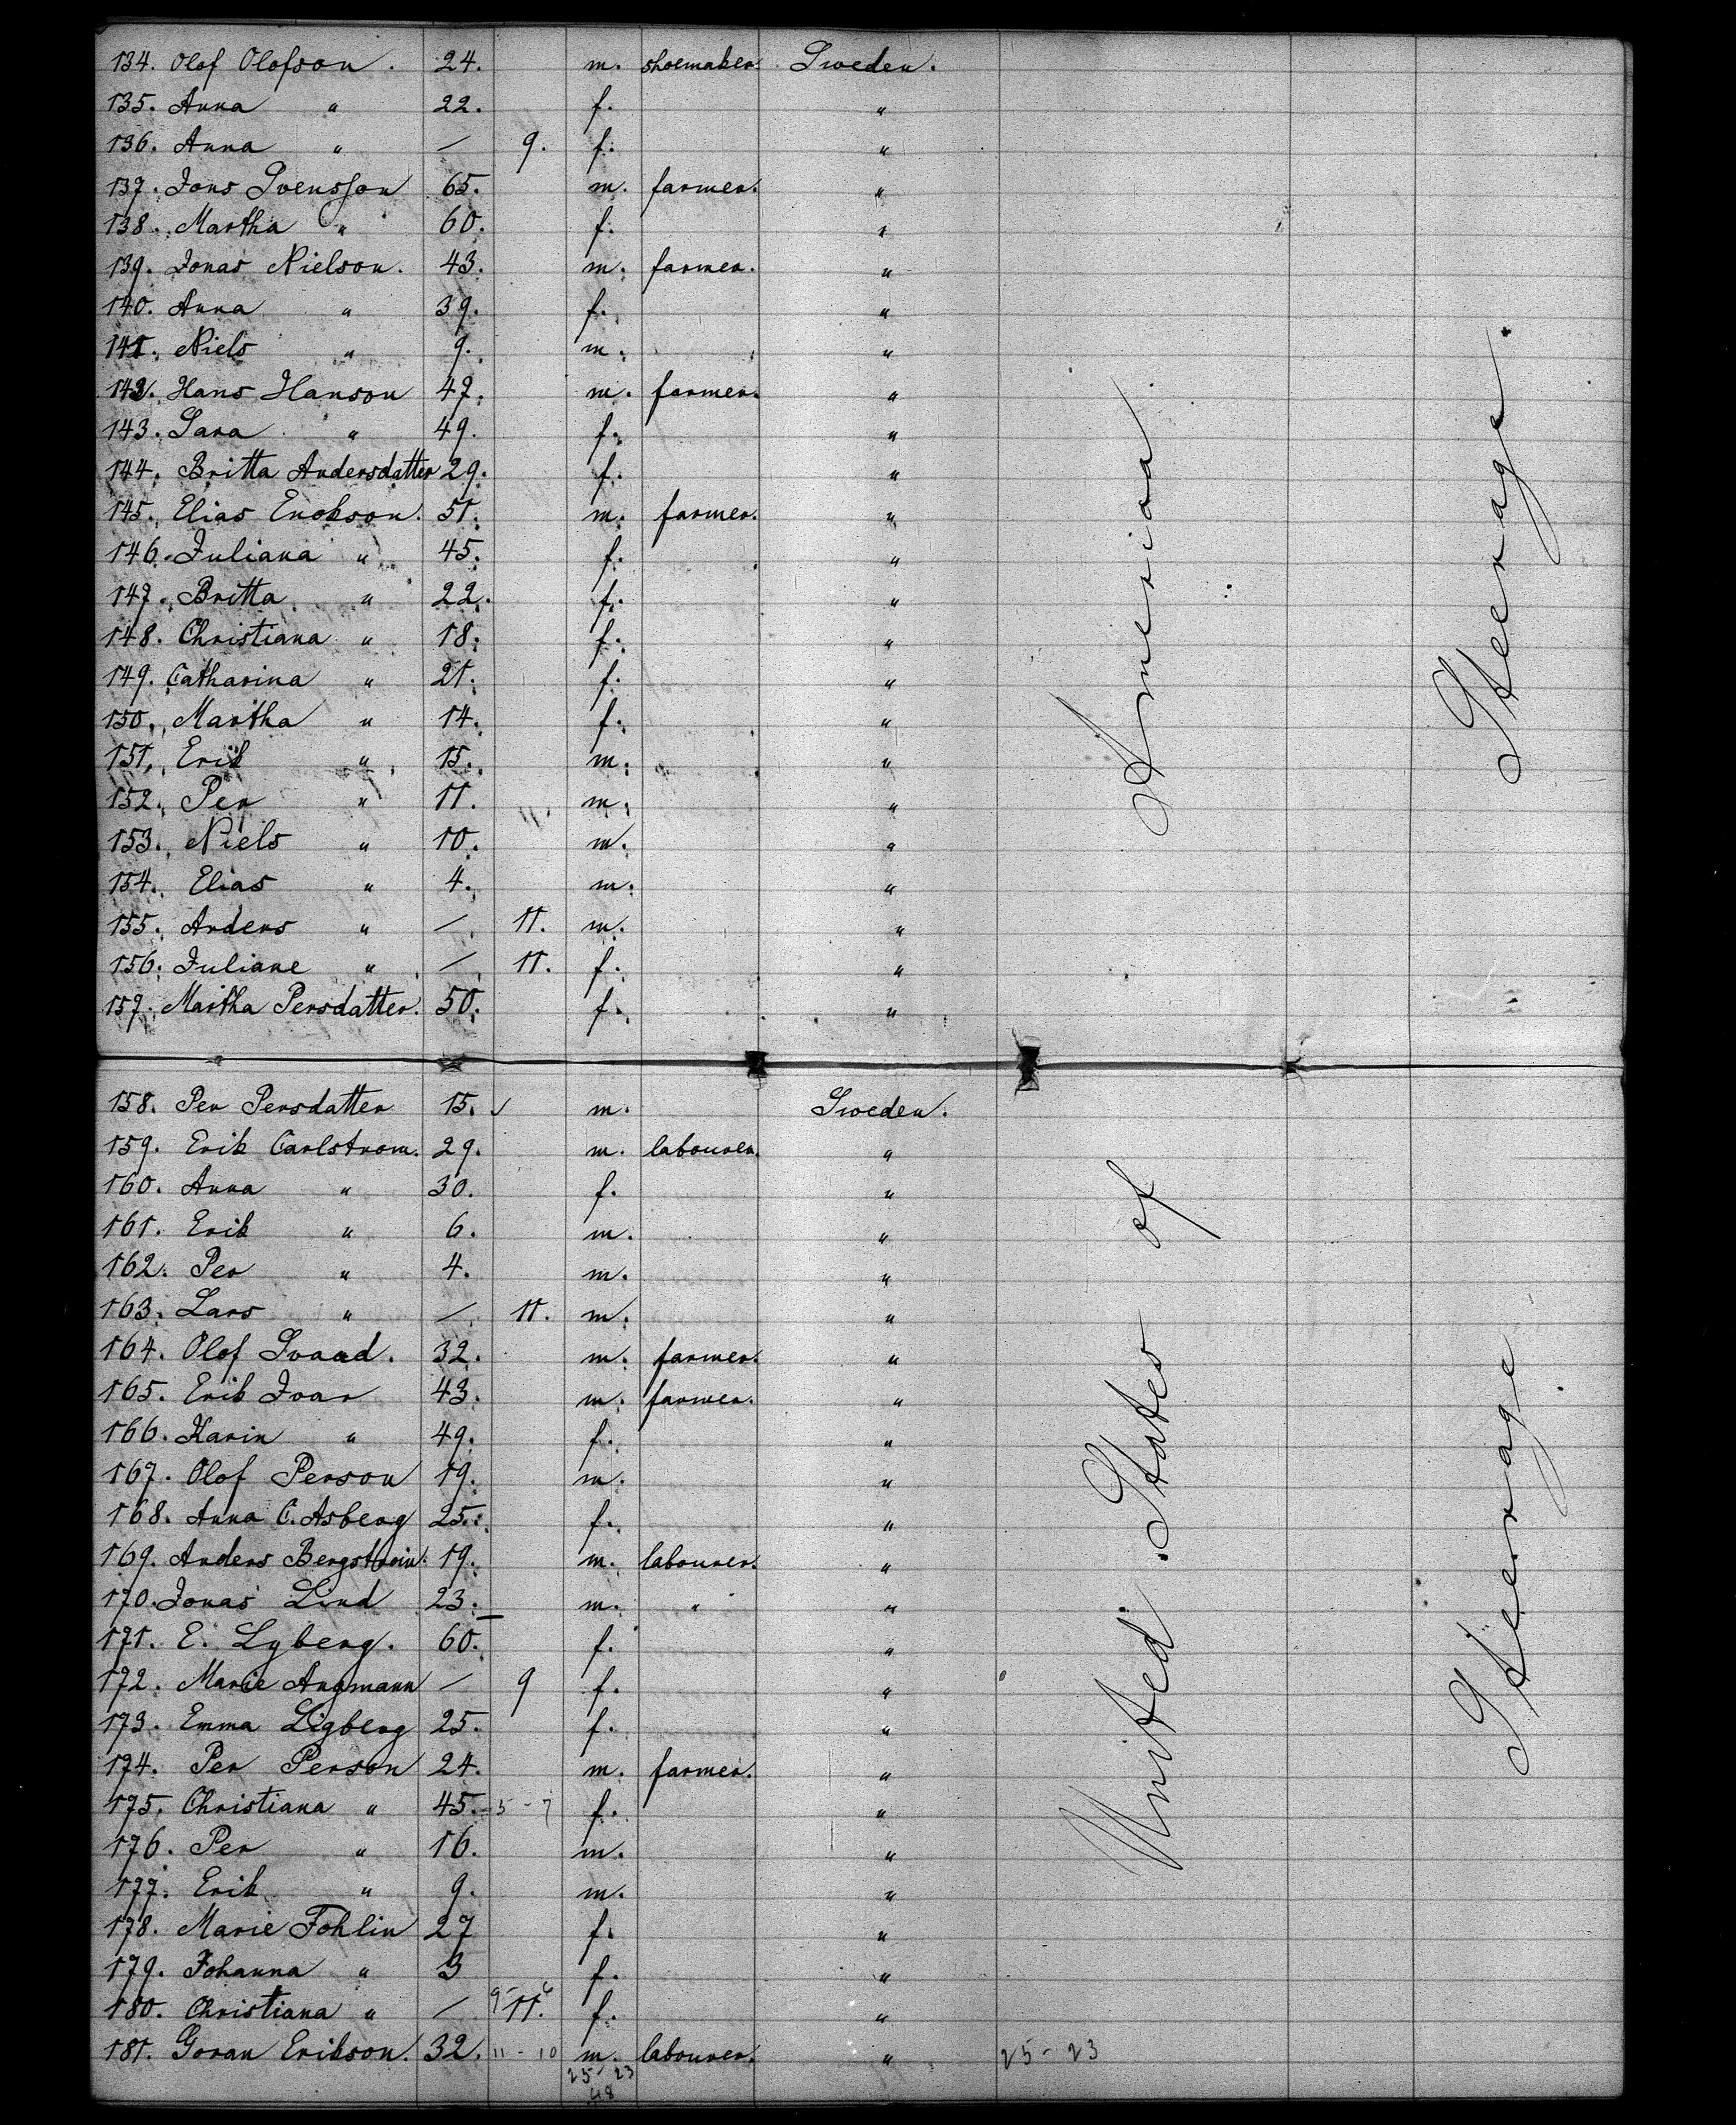 134. Olof Olofson. 24. m. shoemaker. Sweden.
135. Anna " 22. f. "
136. Anna " — 9. f. "
137. Jons Svensson 65. m. farmer. "
138. Martha " 60. f. "
139. Jonas Nielson. 43. m. farmer. "
140. Anna " 39. f. "
141. Niels " 9. m. "
142. Hans Hanson 47. m. farmer. "
143. Sara " 49. f. "
144. Britta Andersdatter 29. f. "
145. Elias Enokson. 51. m. farmer. "
146. Juliana " 45. f. "
147. Britta " 22. f. "
148. Christiana " 18. f. "
149. Catharina " 21. f. "
150. Martha " 14. f. "
151. Erik " 15. m. "
152. Per " 11. m. "
153. Niels " 10. m. "
154. Elias " 4. m. "
155. Anders " — 11. m. "
156. Juliane " — 11. f. "
157. Martha Persdatter. 50. f. "
158. Per Persdatter 15. m. Sweden.
159. Erik Carlstrom. 29. m. labourer. "
160. Anna " 30. f. "
161. Erik " 6. m. "
162. Per " 4. m. "
163. Lars " — 11. m. "
164. Olof Svaad. 32. m. farmer. "
165. Erik Ivar 43. m. farmer. "
166. Karin " 49. f. "
167. Olof Person 19. m. "
168. Anna C. Asberg 25. f. "
169. Anders Bergstroin. 19. m. labourer. "
170. Jonas Lind 23. m. " "
171. E. Lyberg. 60. f. "
172. Marie Angmann — 9 f. "
173. Emma Ligberg 25. f. "
174. Per Person 24. m. farmer. "
175. Christiana " 45. 5-7 f. "
176. Per " 16. m. "
177. Erik " 9. m. "
178. Marie Fohlin 27 f. "
179. Johanna " 3 f. "
180. Christiana " — 9- 11. 6 f. "
181. Goran Erikson. 32. 11-10 m. labourer. " 25-23
25-23
48
United States of America
Steerage
Steerage.